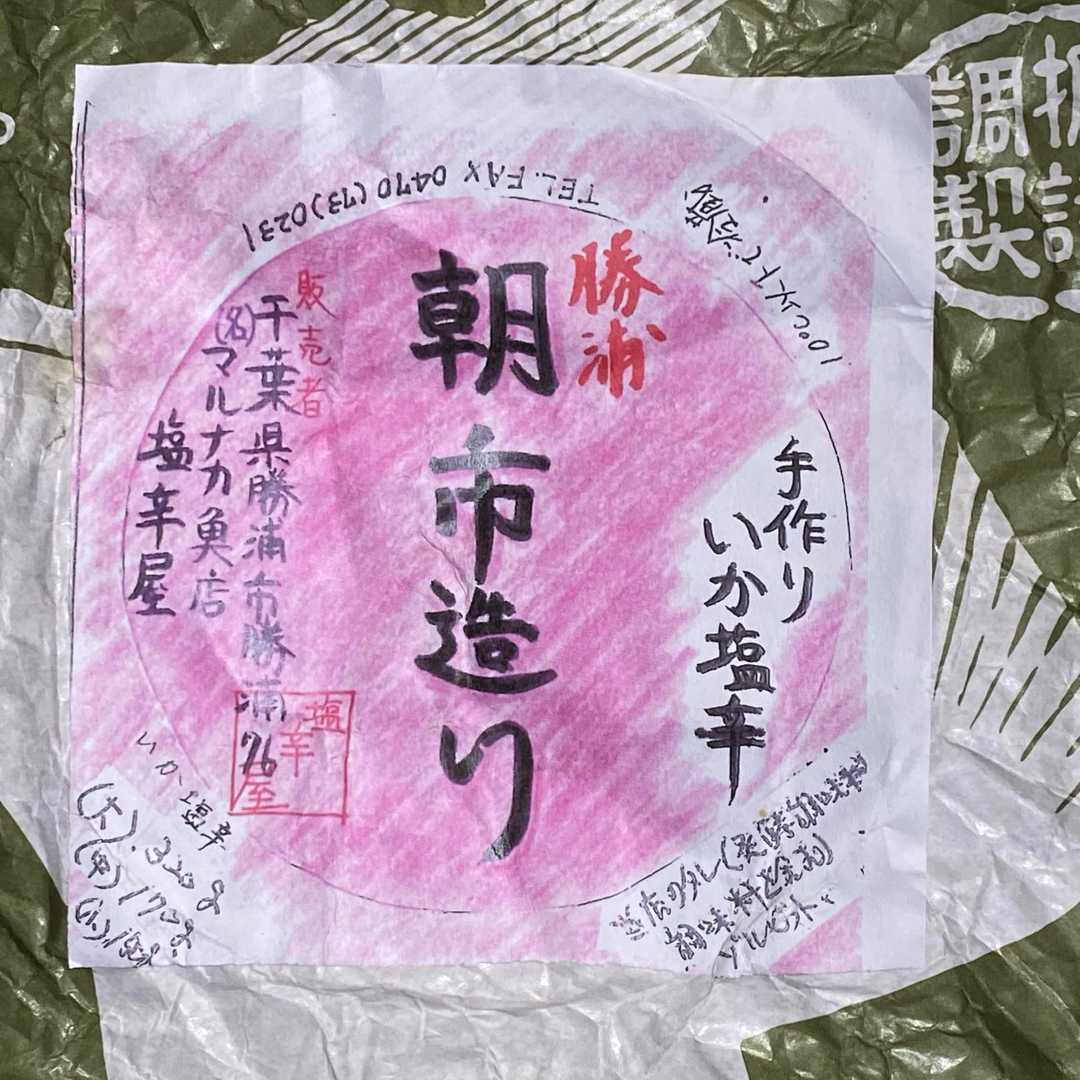 勝浦
朝市造り
手作り
いか塩辛
販売者
千葉県勝浦市勝浦76
(名)マルナカ魚店
塩辛屋
塩辛屋
TEL.FAX 0470(73)0231
10℃以下で
いか塩辛
(大) 320g
(中) 170g
(小)
調味料
調製